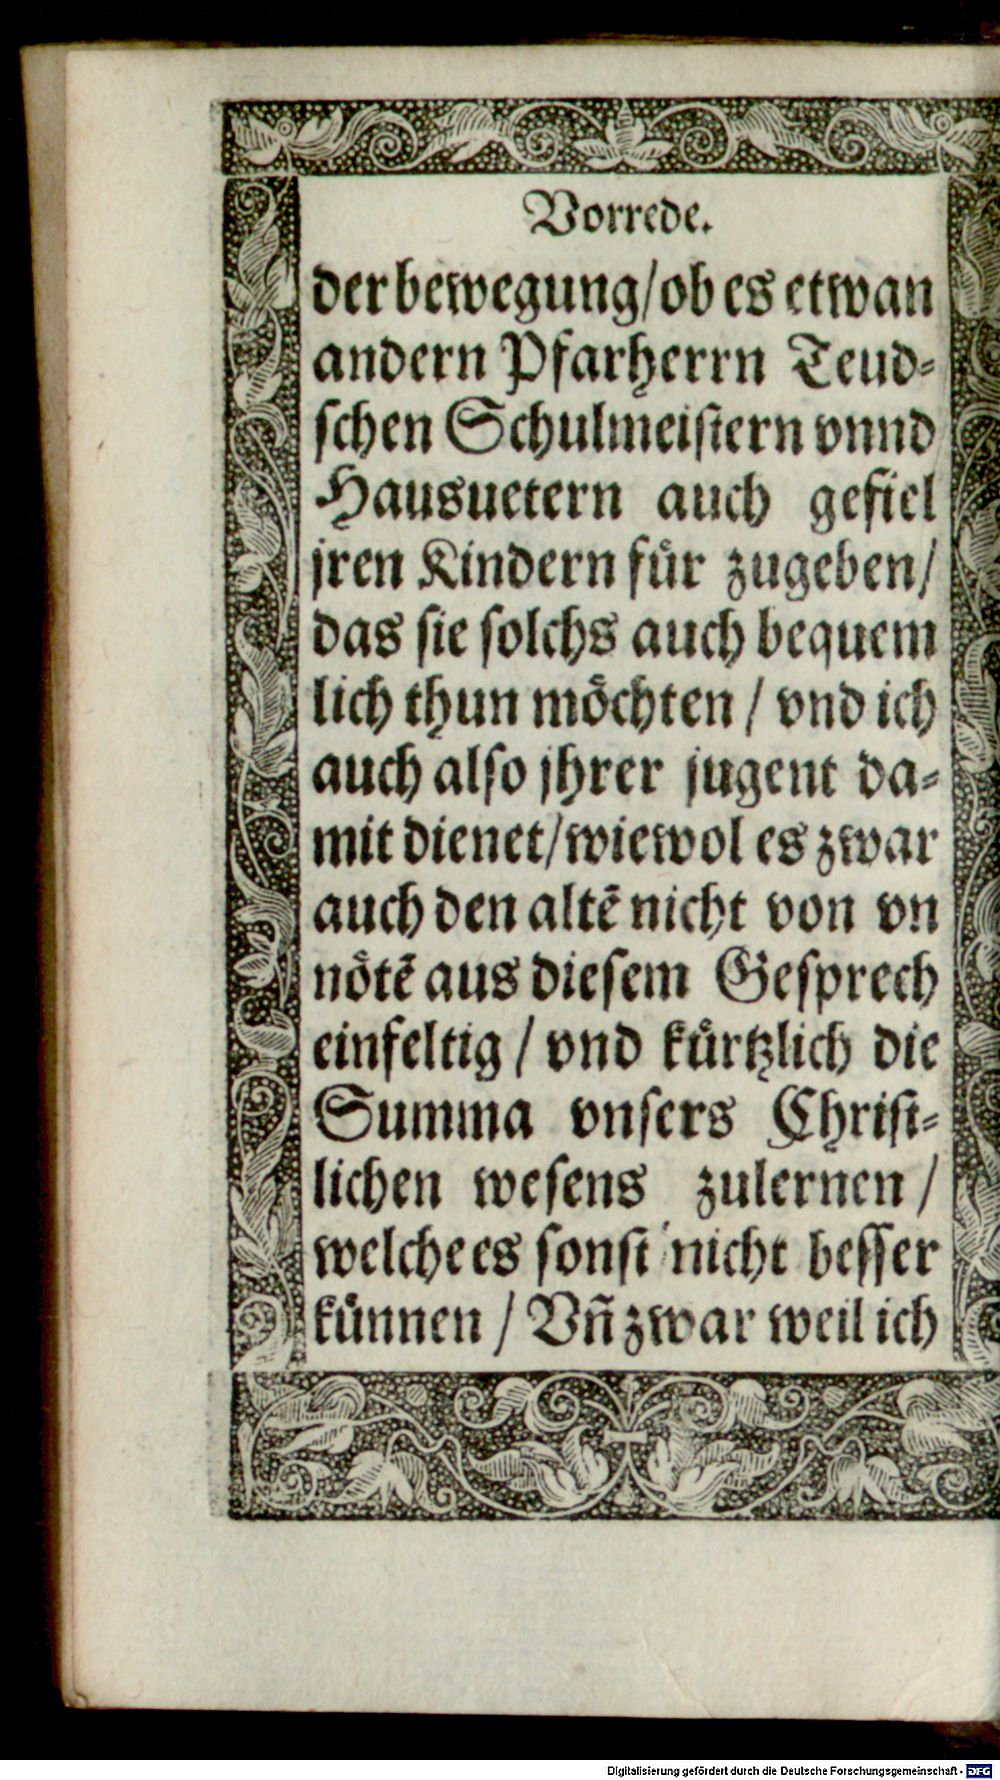 Vorrede.
der bewegung/ob es etwan
andern Pfarherrn Teud⸗
ſchen Schulmeiſtern vnnd
Hausuetern auch gefiel
jren Kindern fuͤr zugeben/
das ſie ſolchs auch bequem
lich thun moͤchten / vnd ich
auch alſo jhrer jugent da⸗
mit dienet/wiewol es zwar
auch den altẽ nicht von vn
noͤtẽ aus dieſem Geſprech
einfeltig / vnd kuͤrtzlich die
Summa vnſers Chriſt⸗
lichen weſens zulernen /
welche es ſonſt nicht beſſer
kuͤnnen / Vñ zwar weil ich
Digitalisierung gefördert durch die Deutsche Forschungsgemeinschaft - DFG